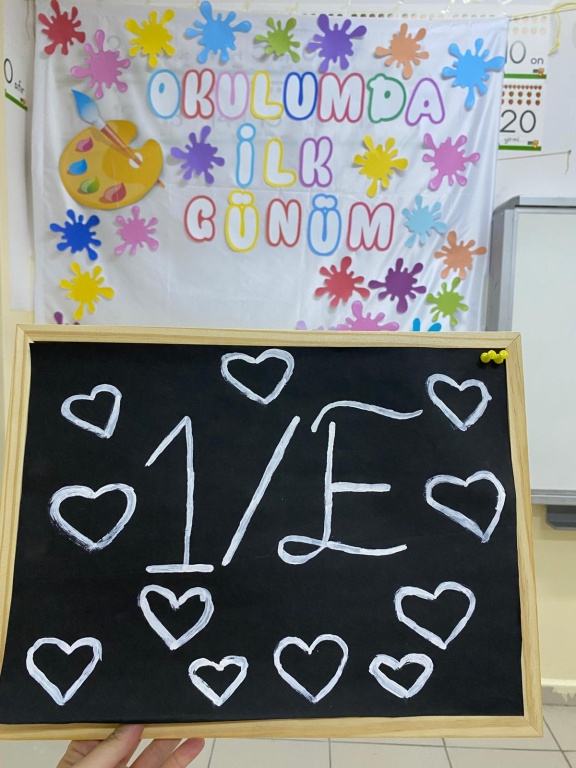 OKULUMDA
İLK
GÜNÜM
0
sıfır
10 on
20
yirmi
1/E